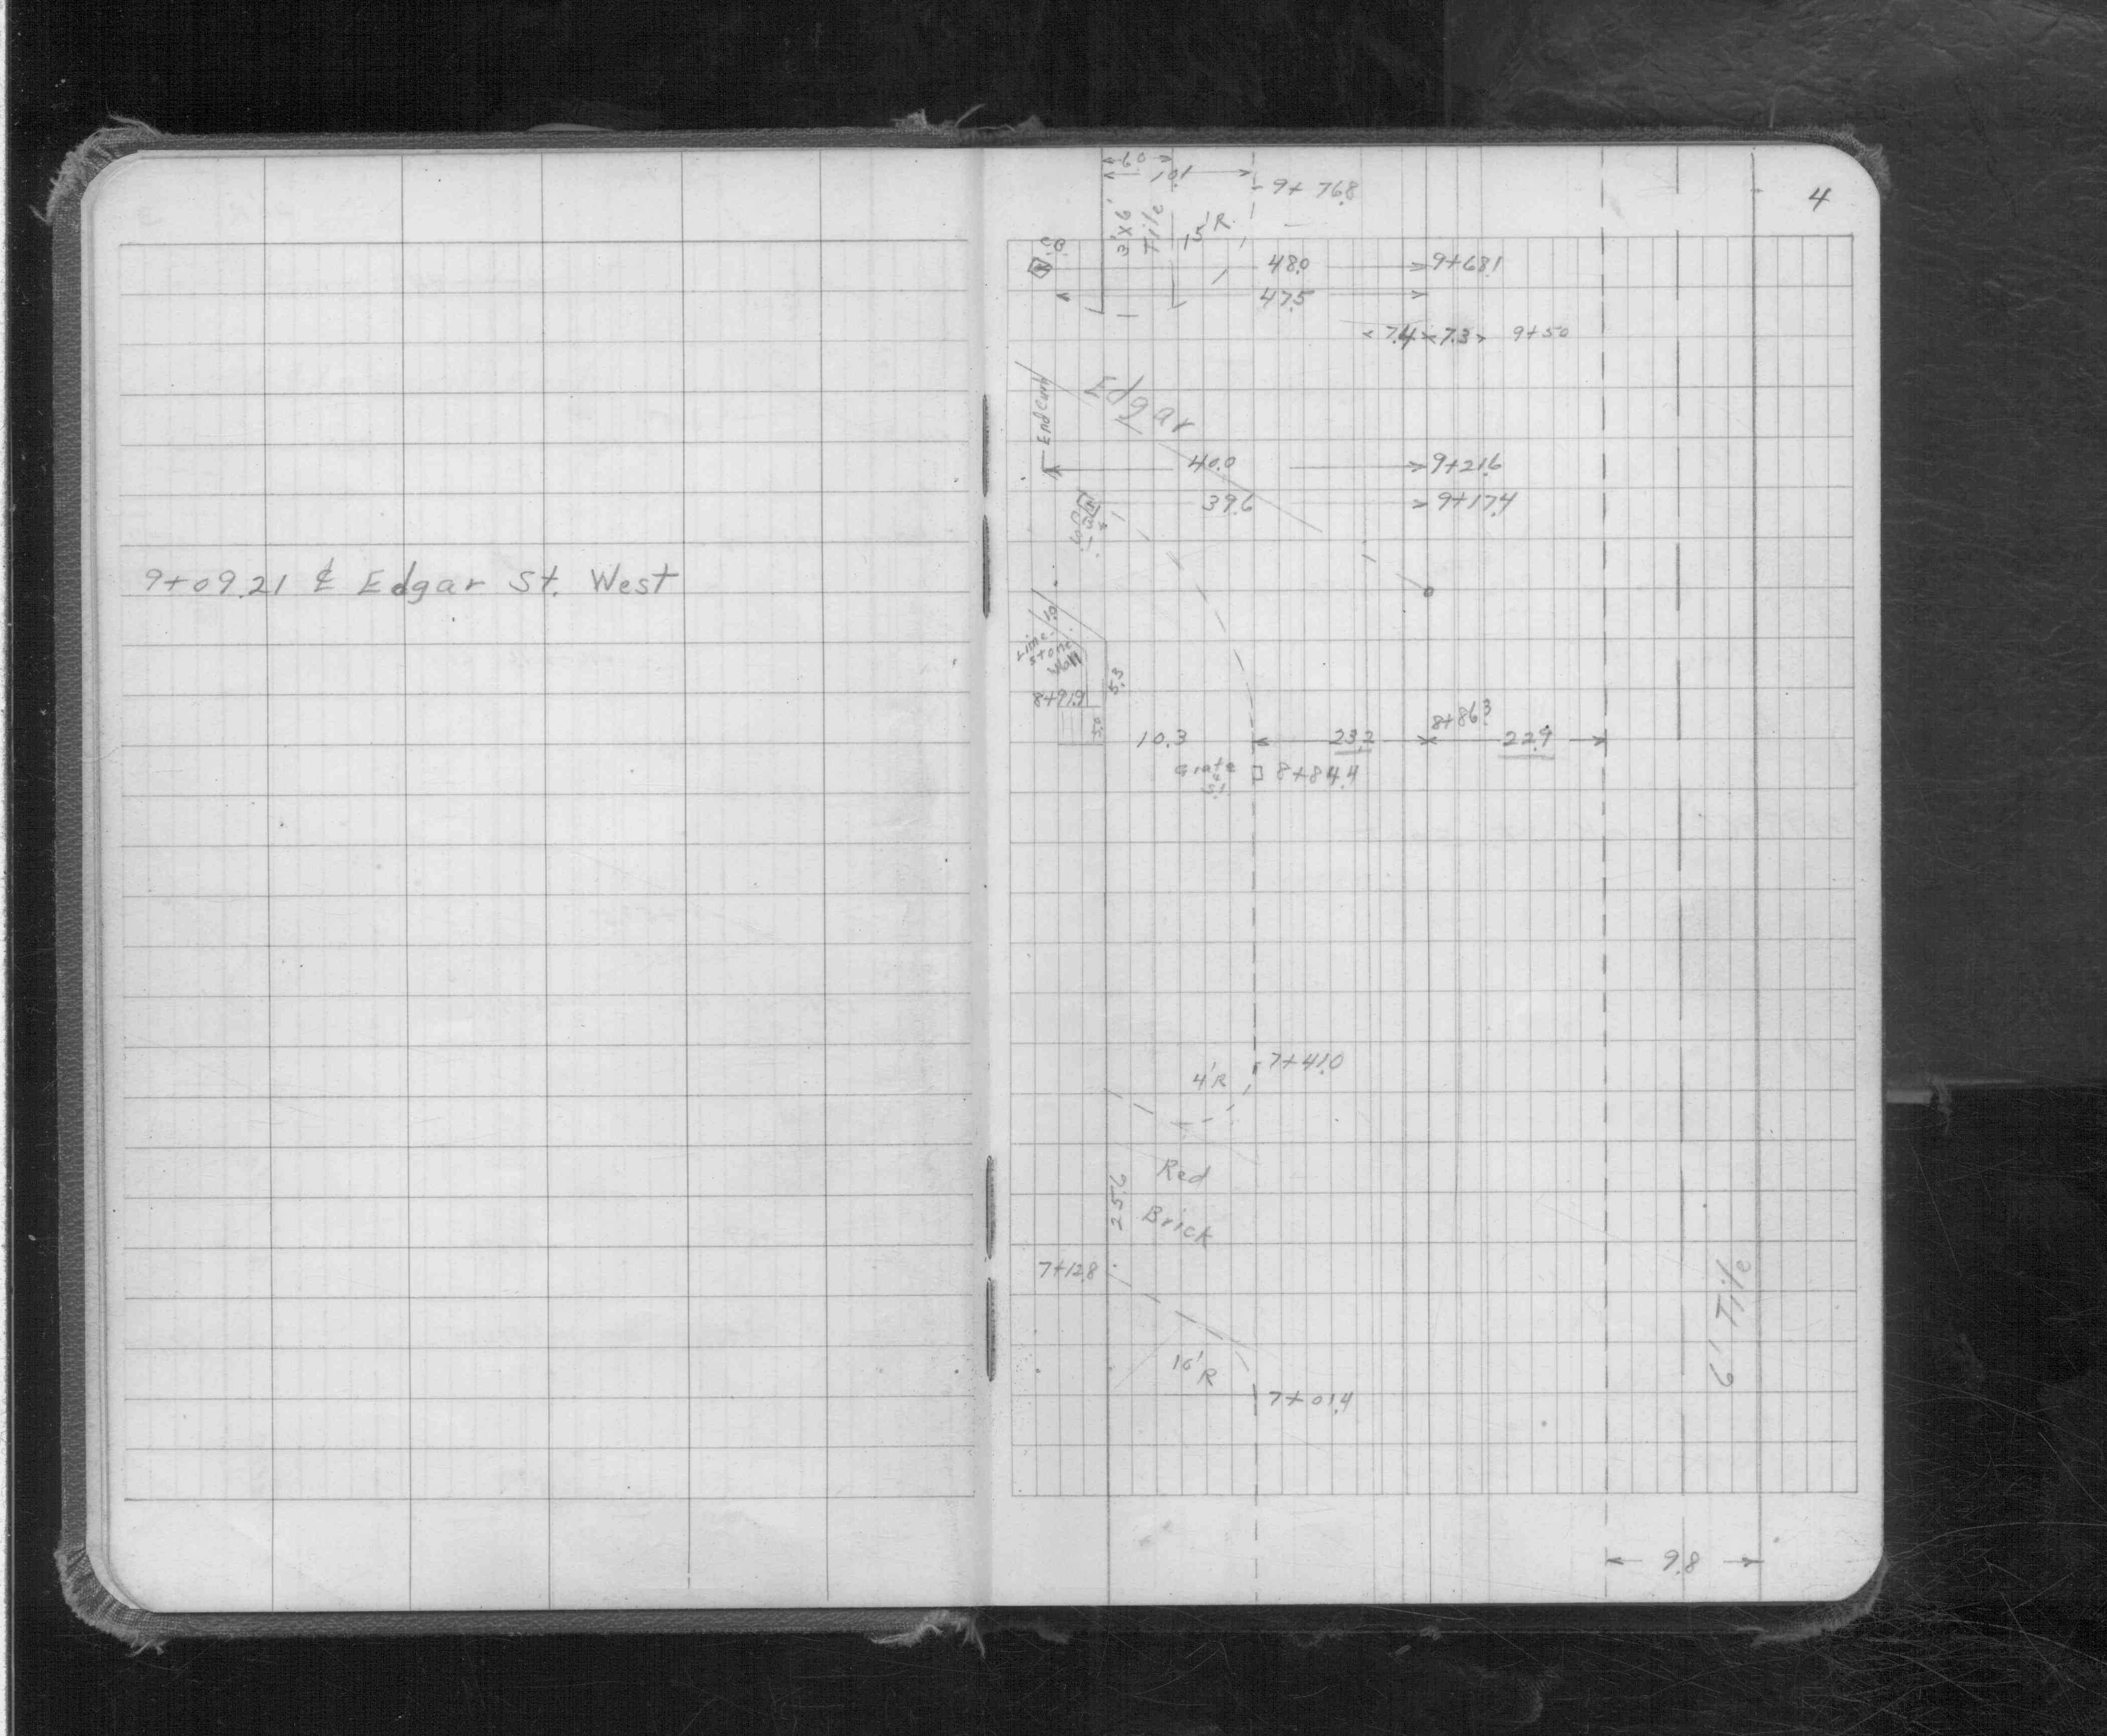 9+09.21 ℄ Edgar St. West
4
6.0
10.1
9+76.8
3'x6'
Tile
15'R
C.B.
48.0 9+68.1
47.5
7.4 7.3 9+50
End Curb
Edgar
40.0 9+21.6
39.6 9+17.4
Lime
stone
Wall
5.3
8+91.9
5.0
8+86.3
10.3 23.2 22.9
Grate
8+84.4
7+41.0
4'R
Red
Brick
25.6
7+12.8
16'R
7+01.4
6' Tile
9.8